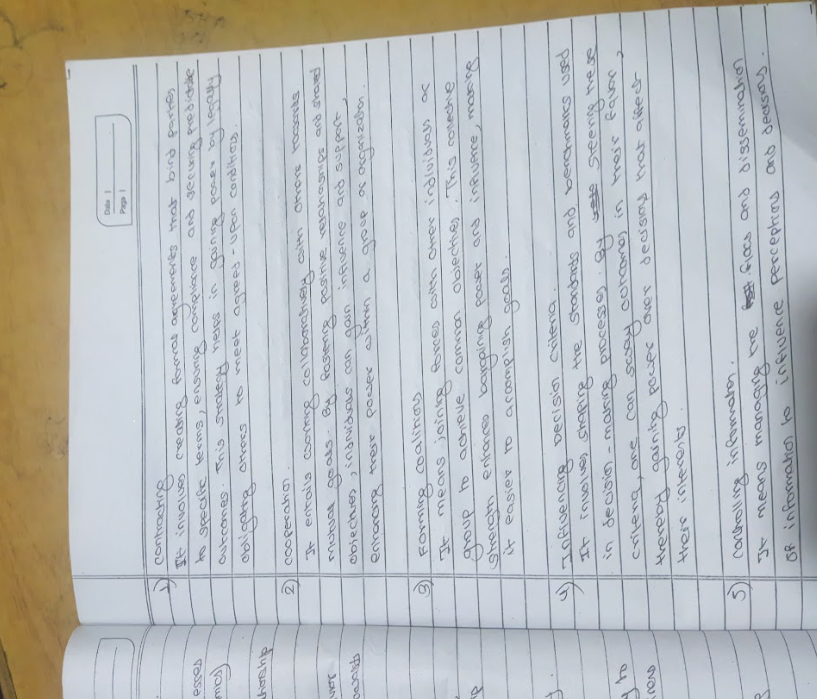 Date |
Page |
1) Contracting
It involves creating formal agreements that bind parties
to specific terms, ensuring compliance and securing predictable
outcomes. This strategy helps in gaining power by legally
obligating others to meet agreed-upon conditions.
2) Cooperation.
It entails working collaboratively with others towards
mutual goals. By fostering positive relationships and shared
objectives, individuals can gain influence and support,
enhancing their power within a group or organization.
3) Forming coalitions
It means joining forces with other individuals or
group to achieve common objectives. This collective
strength enhances bargaining power and influence, making
it easier to accomplish goals.
4) Influencing Decision Criteria.
It involves shaping the standards and benchmarks used
in decision-making processes. By steering these
criteria, one can sway outcomes in their favor,
thereby gaining power over decisions that affect
their interests.
5) Controlling information.
It means managing the flow and dissemination
of information to influence perceptions and decisions.